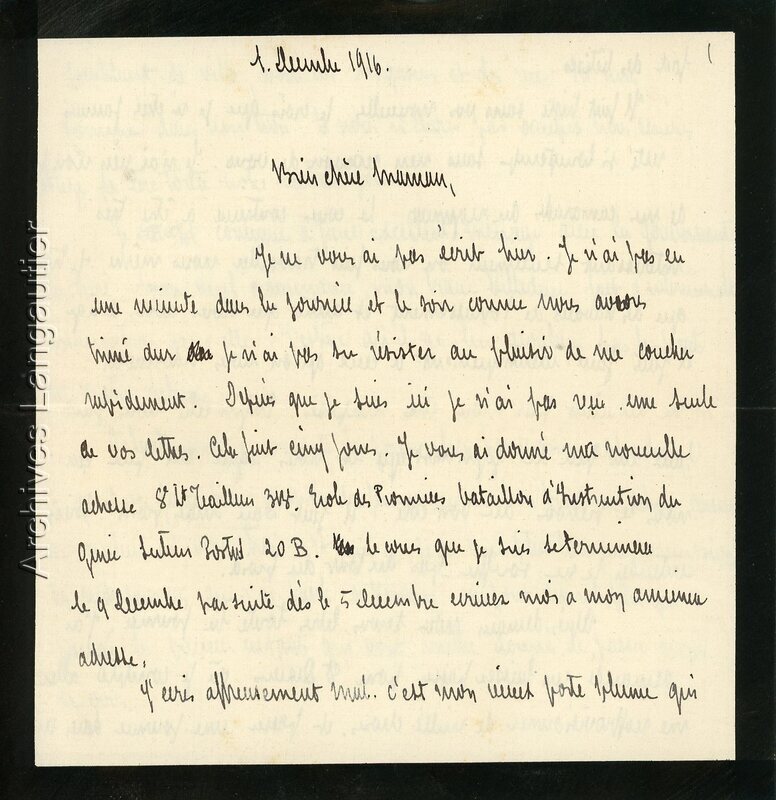 1
1. Decembre 1916.
Bien chère Maman,
Je ne vous ai pas écrit hier. Je n'ai pas eu
une minute dans la journée et le soir comme nous avions
trimé dur je n'ai pas su résister au plaisir de me coucher
rapidement. Depuis que je suis ici je n'ai pas vu une seule
de vos lettres. Cela fait cinq jours. Je vous ai donné ma nouvelle
adresse St Lt Ecole des Pionniers bataillon d'Instruction du
Génie Secteur Postal 20 B. le cours que je suis se terminera
le 9 Decembre par suite dès le 5 Decembre ecrivez moi a mon ancienne
adresse.
J'ecris affreusement mal. c'est mon porte plume qui
Archives Langautier